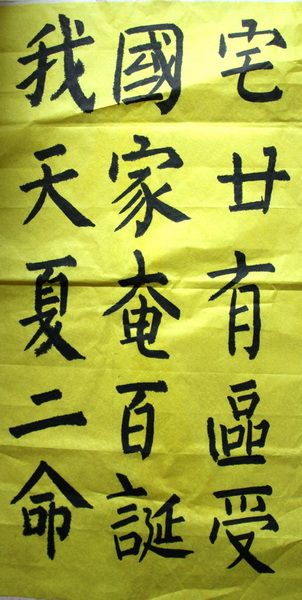 宅廿有區受
國家奄百誕
我天夏二命